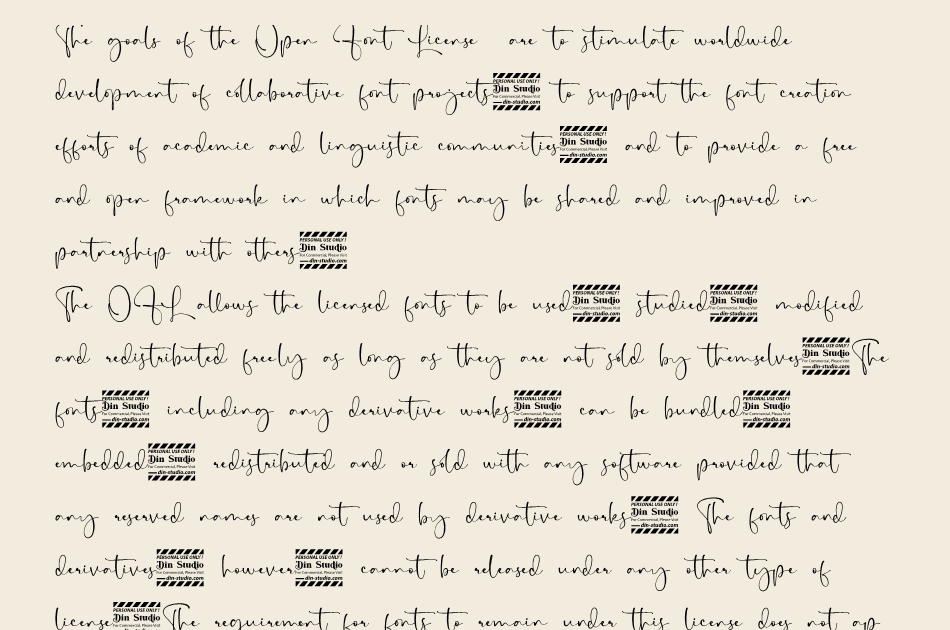 The goals of the Open Font License are to stimulate worldwide
development of collaborative font projects PERSONAL USE ONLY! Din Studio For Commercial, Please Visit din-studio.com to support the font creation
efforts of academic and linguistic communities PERSONAL USE ONLY! Din Studio For Commercial, Please Visit din-studio.com and to provide a free
and open framework in which fonts may be shared and improved in
partnership with others PERSONAL USE ONLY! Din Studio For Commercial, Please Visit din-studio.com
The OFL allows the licensed fonts to be used PERSONAL USE ONLY! Din Studio For Commercial, Please Visit din-studio.com studied PERSONAL USE ONLY! Din Studio For Commercial, Please Visit din-studio.com modified
and redistributed freely as long as they are not sold by themselves PERSONAL USE ONLY! Din Studio For Commercial, Please Visit din-studio.com The
fonts PERSONAL USE ONLY! Din Studio For Commercial, Please Visit din-studio.com including any derivative works PERSONAL USE ONLY! Din Studio For Commercial, Please Visit din-studio.com can be bundled PERSONAL USE ONLY! Din Studio For Commercial, Please Visit din-studio.com
embedded PERSONAL USE ONLY! Din Studio For Commercial, Please Visit din-studio.com redistributed and or sold with any software provided that
any reserved names are not used by derivative works PERSONAL USE ONLY! Din Studio For Commercial, Please Visit din-studio.com The fonts and
derivatives PERSONAL USE ONLY! Din Studio For Commercial, Please Visit din-studio.com however PERSONAL USE ONLY! Din Studio For Commercial, Please Visit din-studio.com cannot be released under any other type of
license PERSONAL USE ONLY! Din Studio For Commercial, Please Visit The requirement for fonts to remain under this license does not ap